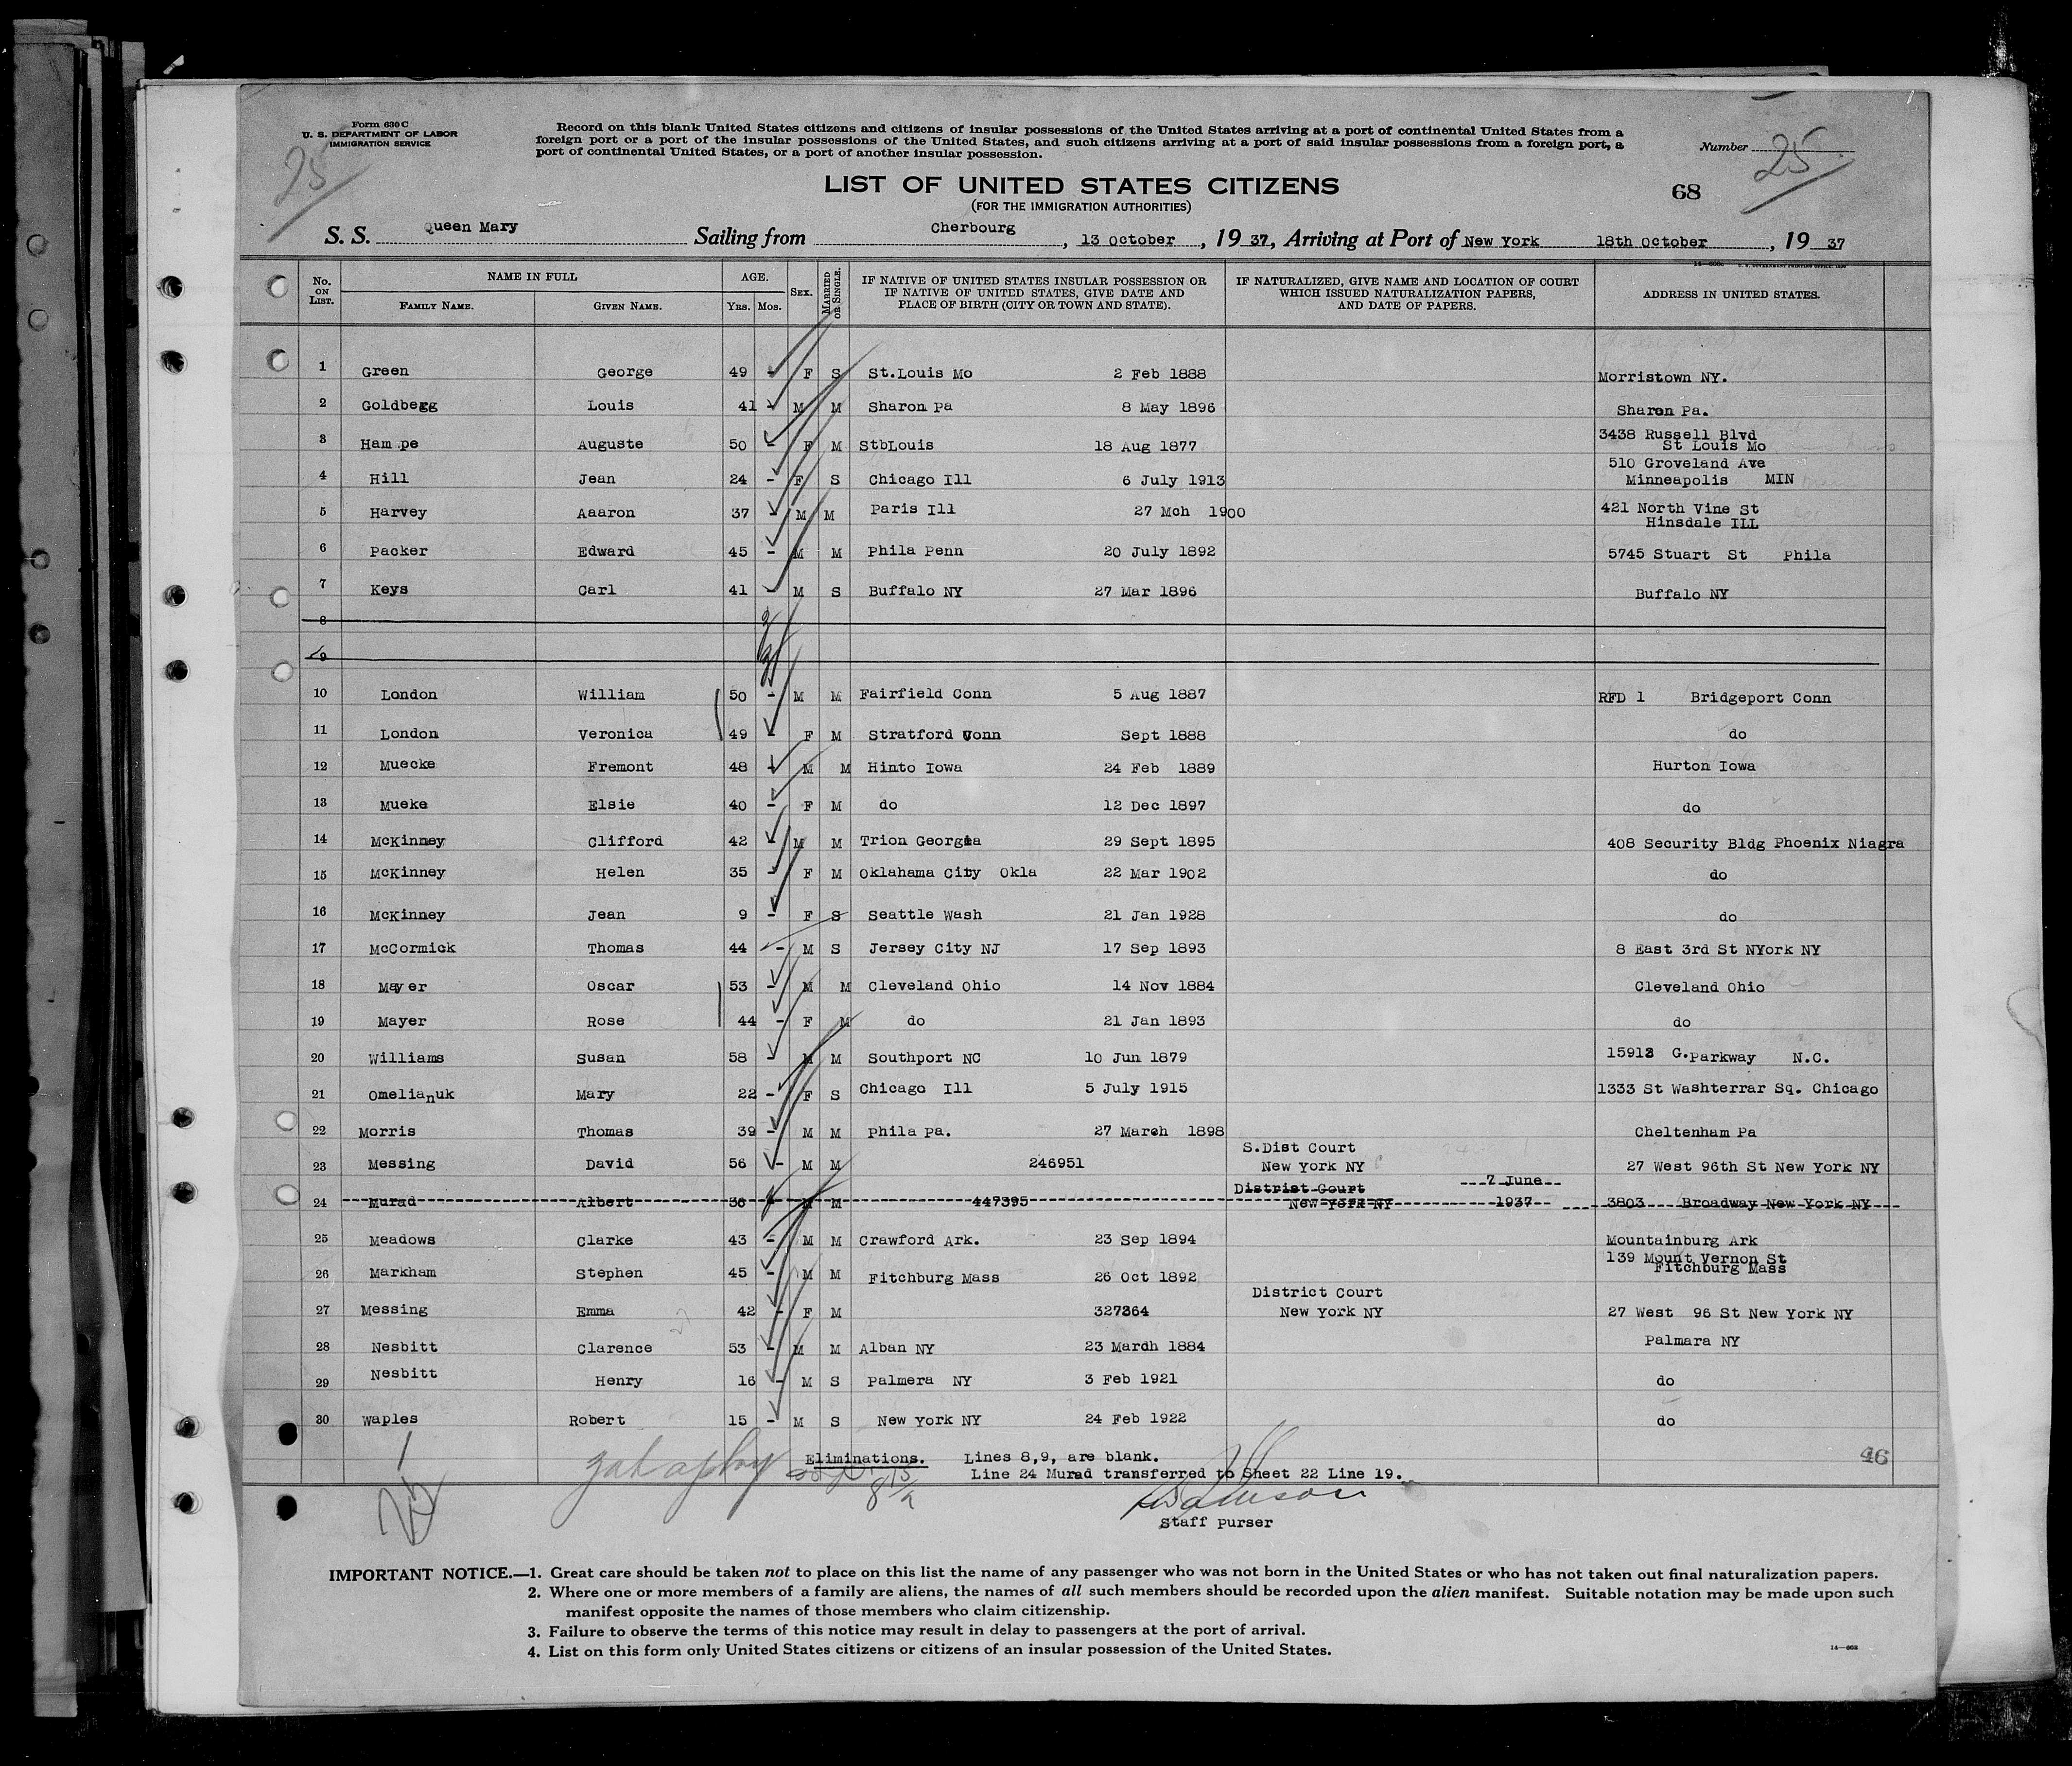 Form 630 C
U. S. DEPARTMENT OF LABOR
IMMIGRATION SERVICE
25
Record on this blank United States citizens and citizens of insular possessions of the United States arriving at a port of continental United States from a
foreign port or a port of the insular possessions of the United States, and such citizens arriving at a port of said insular possessions from a foreign port, a
port of continental United States, or a port of another insular possession.
Number 25
LIST OF UNITED STATES CITIZENS
(FOR THE IMMIGRATION AUTHORITIES)
68
S. S. Queen Mary Sailing from Cherbourg, 13 October, 19 37, Arriving at Port of New York 18th October, 19 37
No. ON LIST. NAME IN FULL FAMILY NAME. GIVEN NAME. AGE. YRS. MOS. SEX. MARRIED OR SINGLE. IF NATIVE OF UNITED STATES INSULAR POSSESSION OR IF NATIVE OF UNITED STATES, GIVE DATE AND PLACE OF BIRTH (CITY OR TOWN AND STATE). IF NATURALIZED, GIVE NAME AND LOCATION OF COURT WHICH ISSUED NATURALIZATION PAPERS, AND DATE OF PAPERS. ADDRESS IN UNITED STATES.
1 Green George 49 - F S St.Louis Mo 2 Feb 1888 Morristown NY.
2 Goldberg Louis 41 - M M Sharon Pa 8 May 1896 Sharon Pa.
3 Hampe Auguste 50 - F M StbLouis 18 Aug 1877 3438 Russell Blvd St Louis Mo
4 Hill Jean 24 - F S Chicago Ill 6 July 1913 510 Groveland Ave Minneapolis MIN
5 Harvey Aaaron 37 - M M Paris Ill 27 Mch 1900 421 North Vine St Hinsdale ILL
6 Packer Edward 45 - M M Phila Penn 20 July 1892 5745 Stuart St Phila
7 Keys Carl 41 - M S Buffalo NY 27 Mar 1896 Buffalo NY
8
9
10 London William 50 - M M Fairfield Conn 5 Aug 1887 RFD 1 Bridgeport Conn
11 London Veronica 49 - F M Stratford Conn Sept 1888 do
12 Muecke Fremont 48 - M M Hinto Iowa 24 Feb 1889 Hurton Iowa
13 Mueke Elsie 40 - F M do 12 Dec 1897 do
14 McKinney Clifford 42 - M M Trion Georgia 29 Sept 1895 408 Security Bldg Phoenix Niagra
15 McKinney Helen 35 - F M Oklahama City Okla 22 Mar 1902 do
16 McKinney Jean 9 - F S Seattle Wash 21 Jan 1928 do
17 McCormick Thomas 44 - M S Jersey City NJ 17 Sep 1893 8 East 3rd St NYork NY
18 Mayer Oscar 53 - M M Cleveland Ohio 14 Nov 1884 Cleveland Ohio
19 Mayer Rose 44 - F M do 21 Jan 1893 do
20 Williams Susan 58 - M M Southport NC 10 Jun 1879 15913 G.Parkway N.C.
21 Omelianuk Mary 22 - F S Chicago Ill 5 July 1915 1333 St Washterrar Sq. Chicago
22 Morris Thomas 39 - M M Phila Pa. 27 March 1898 Cheltenham Pa
23 Messing David 56 - M M 246951 S.Dist Court New York NY 27 West 96th St New York NY
24 Murad Albert 36 - M M 447395 District Court New York NY 7 June 1937 3803 Broadway New York NY
25 Meadows Clarke 43 - M M Crawford Ark. 23 Sep 1894 Mountainburg Ark
26 Markham Stephen 45 - M M Fitchburg Mass 26 Oct 1892 139 Mount Vernon St Fitchburg Mass
27 Messing Emma 42 - F M 327364 District Court New York NY 27 West 96 St New York NY
28 Nesbitt Clarence 53 - M M Alban NY 23 Mardh 1884 Palmara NY
29 Nesbitt Henry 16 - M S Palmera NY 3 Feb 1921 do
30 Waples Robert 15 - M S New York NY 24 Feb 1922 do
Eliminations. Lines 8,9, are blank.
Line 24 Murad transferred to Sheet 22 Line 19.
46
Staff Purser
IMPORTANT NOTICE.—1. Great care should be taken not to place on this list the name of any passenger who was not born in the United States or who has not taken out final naturalization papers.
2. Where one or more members of a family are aliens, the names of all such members should be recorded upon the alien manifest. Suitable notation may be made upon such
manifest opposite the names of those members who claim citizenship.
3. Failure to observe the terms of this notice may result in delay to passengers at the port of arrival.
4. List on this form only United States citizens or citizens of an insular possession of the United States.